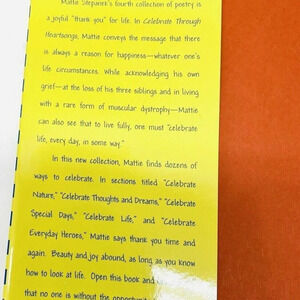 Mattie Stepanek's fourth collection of poetry is
a joyful "thank you" for life. In Celebrate Through
Heartsongs, Mattie conveys the message that there
is always a reason for happiness—whatever one's
life circumstances. While acknowledging his own
grief—at the loss of his three siblings and in living
with a rare form of muscular dystrophy—Mattie
can also see that to live fully, one must "celebrate
life, every day, in some way."
In this new collection, Mattie finds dozens of
ways to celebrate. In sections titled "Celebrate
Nature," "Celebrate Thoughts and Dreams," "Celebrate
Special Days," "Celebrate Life," and "Celebrate
Everyday Heroes," Mattie says thank you time and
again. Beauty and joy abound, as long as you know
how to look at life. Open this book and
that no one is without the